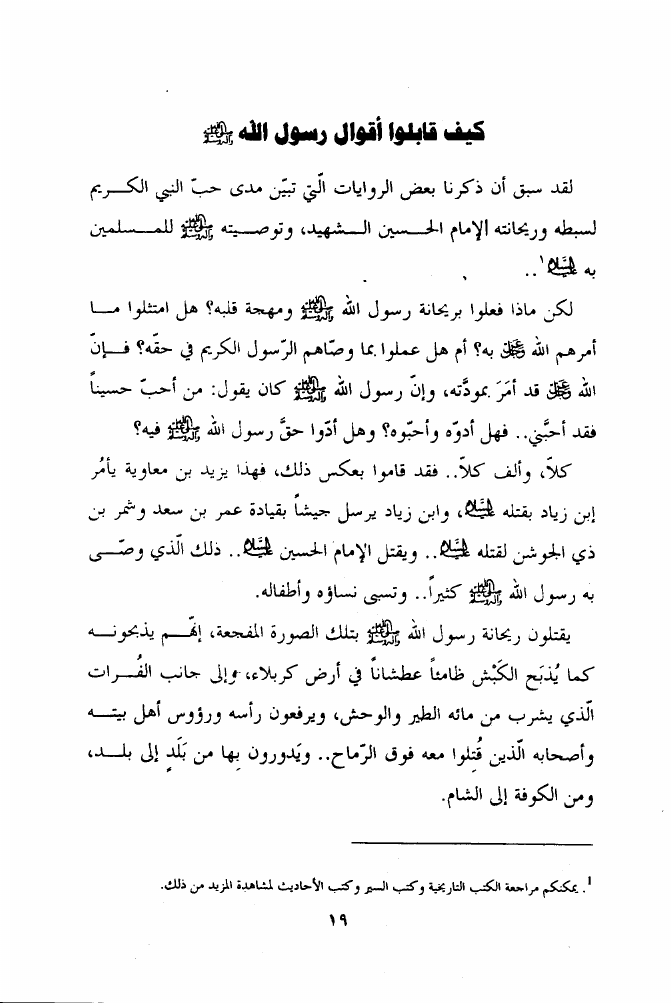 كيف قابلوا أقوال رسول الله ﷺ
لقد سبق أن ذكرنا بعض الروايات الّتي تبيّن مدى حبّ النبي الكـريم
لسبطه وريحانته الإمام الحـسين الـشهيد، وتوصـيته ﷺ للمـسلمين
به عليه السلام¹..
لكن ماذا فعلوا بريحانة رسول الله ﷺ ومهجة قلبه؟ هل امتثلوا مـا
أمرهم الله به؟ أم هل عملوا بما وصّاهم الرّسول الكريم في حقّه؟ فـإنّ
الله قد أمَرَ بمودّته، وإنّ رسول الله ﷺ كان يقول: من أحبّ حسيناً
فقد أحبَّني.. فهل أدوّه وأحبّوه؟ وهل أدّوا حقَّ رسول الله ﷺ فيه؟
كلاّ، وألف كلاّ.. فقد قاموا بعكس ذلك، فهذا يزيد بن معاوية يأمُر
إبن زياد بقتله عليه السلام، وابن زياد يرسل جيشاً بقيادة عمر بن سعد وشمر بن
ذي الجوشن لقتله عليه السلام.. ويقتل الإمام الحسين عليه السلام.. ذلك الّذي وصّـى
به رسول الله ﷺ كثيراً.. وتسبى نساؤه وأطفاله.
يقتلون ريحانة رسول الله ﷺ بتلك الصورة المفجعة، إنّهـم يذبحونـه
كما يُذبَح الكَبْش ظامئاً عطشاناً في أرض كربلاء، وإلى جانب الفُـرات
الّذي يشرب من مائه الطير والوحش، ويرفعون رأسه ورؤوس أهل بيتـه
وأصحابه الّذين قُتِلوا معه فوق الرّماح.. ويَدورون بِها من بَلَدٍ إلى بلـد،
ومن الكوفة إلى الشام.
¹. يمكنكم مراجعة الكتب التاريخية وكتب السير وكتب الأحاديث لمشاهدة المزيد من ذلك.
١٩